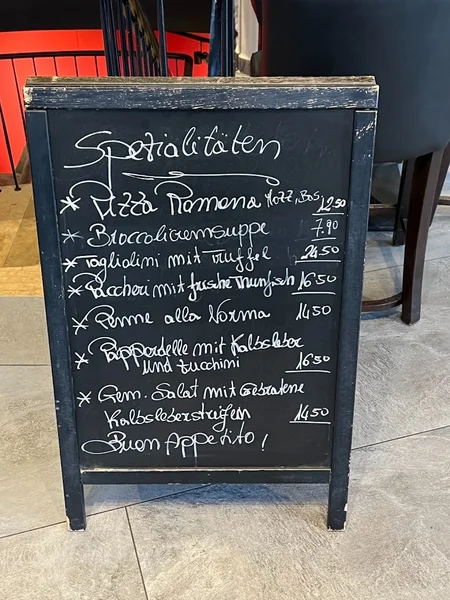 Spezialitäten
* Pizza Romana Mozz, Bas, 12.50
* Broccolicremsuppe 7.90
* Tagliolini mit Trüffel 24.50
* Paccheri mit frische Thunfisch 16.50
* Penne alla Norma 14.50
* Pappardelle mit Kalbsleber
und Zucchini 16.50
* Gem. Salat mit Gebratene
Kalbsleberstreifen 14.50
Buon Appetito!